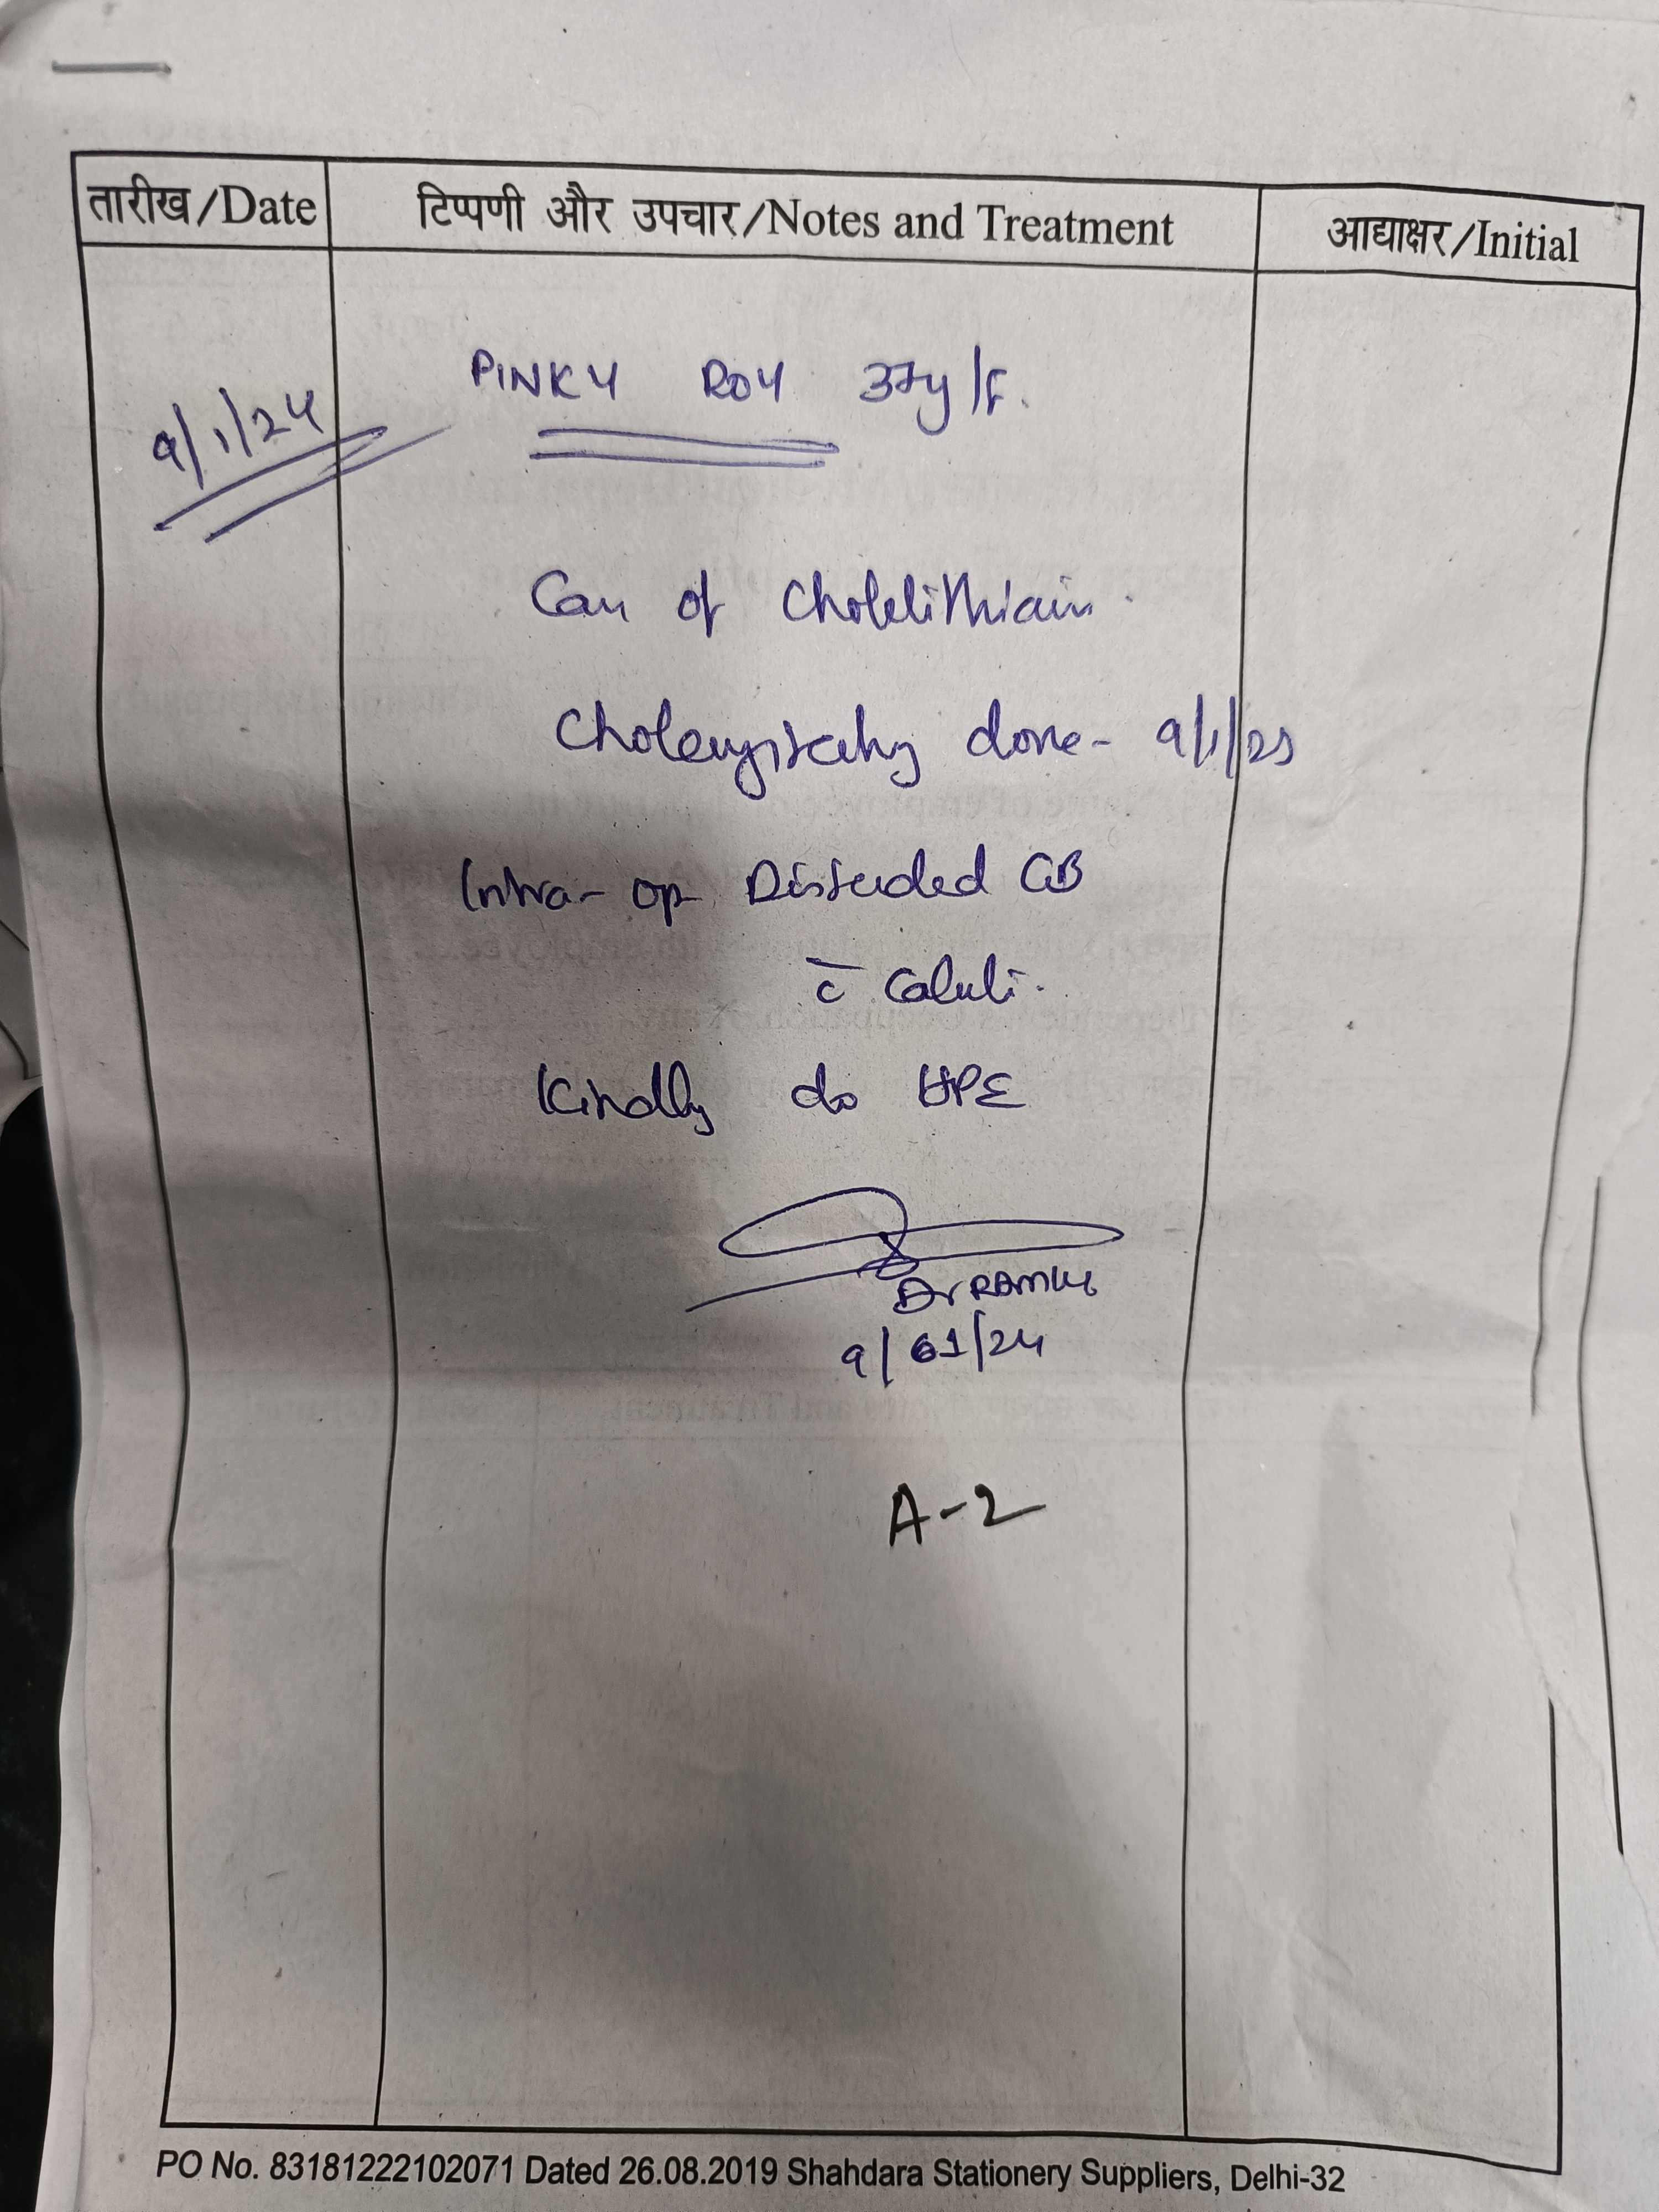 तारीख/Date टिप्पणी और उपचार/Notes and Treatment आद्याक्षर/Initial
9/1/24 PINKY ROY 37y/F.
Case of Cholelithiasis.
Cholecystectomy done - 9/1/23
Intra-op Distended GB
c̄ Calculi.
Kindly do HPE
Dr
9/01/24
A-2
PO No. 83181222102071 Dated 26.08.2019 Shahdara Stationery Suppliers, Delhi-32